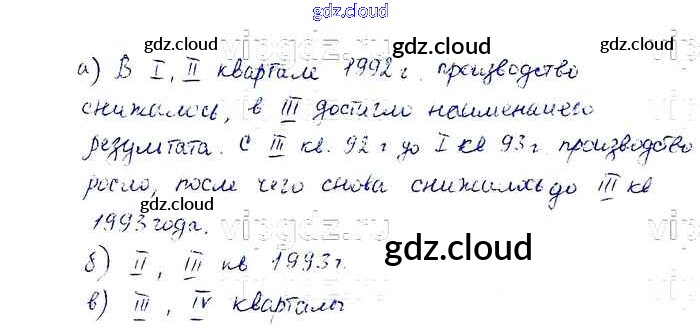 gdz.cloud
gdz.cloud gdz.cloud
а) В I, II квартале 1992 г. производство
снижалось, в III достигло наименьшего
результата. С III кв. 92 г до I кв 93 г. производство
росло, после чего снова снижалось до III кв
gdz.cloud gdz.cloud
1993 года.
gdz.cloud
б) II, III кв 1993 г.
в) III, IV кварталы
gdz.cloud gdz.cloud